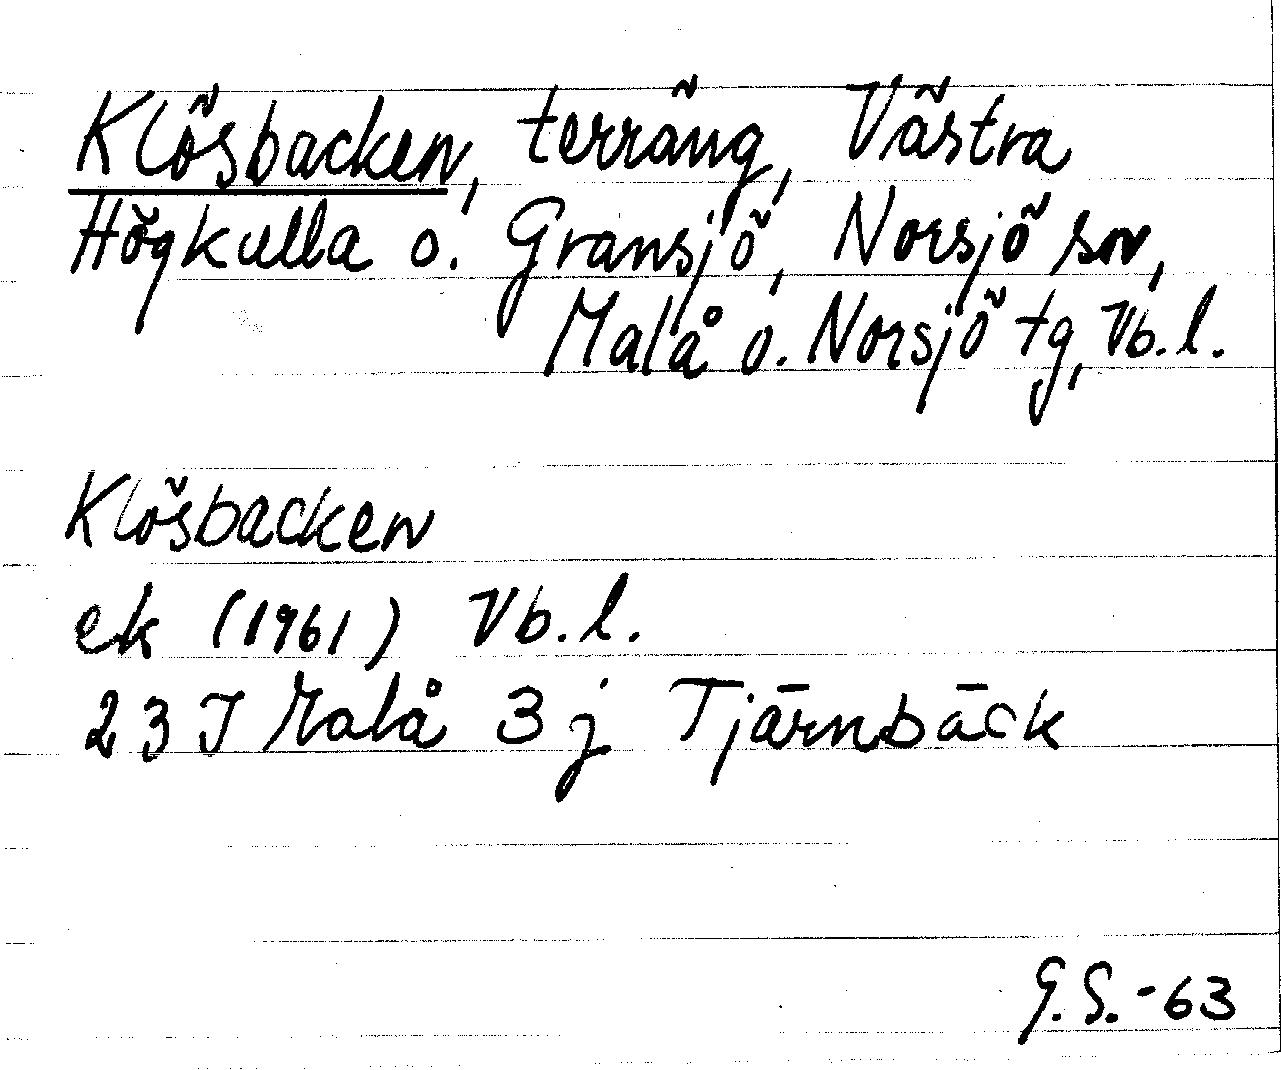 Klösbacken, terräng, Västra
Högkulla o. Gransjö, Norsjö sn,
Malå o. Norsjö tg, Vb. l.
Klösbacken
ek (1961) Vb. l.
23 J Malå 3 j Tjärnbäck
G. S. - 63